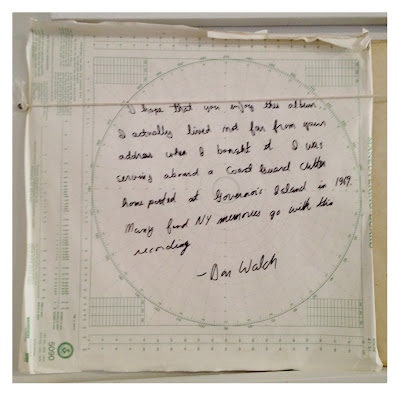 I hope that you enjoy this album.
I actually lived not far from your
address when I bought it. I was
serving aboard a Coast Guard Cutter
home ported at Governor's Island in 1969.
Many fond NY memories go with this
recording
- Don Walch
5090